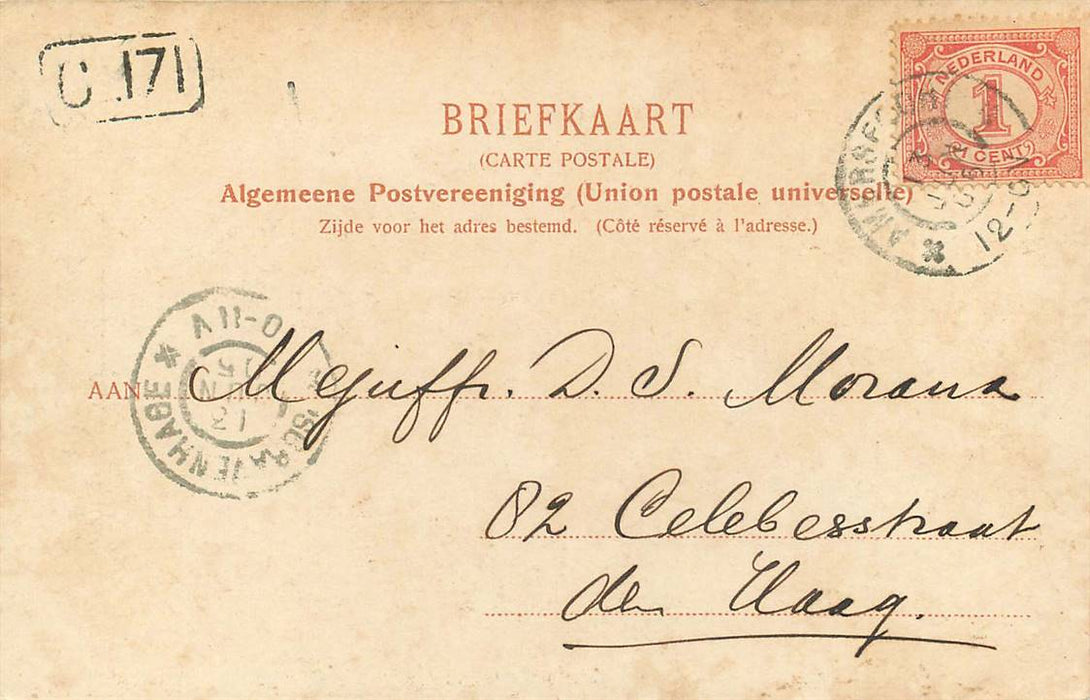 C 171
NEDERLAND
1
(1 CENT)
BRIEFKAART
(CARTE POSTALE)
Algemeene Postvereeniging (Union postale universelle)
Zijde voor het adres bestemd. (Côté réservé à l'adresse.)
AMERSFOORT
12-
AAN Mejuffr. D. S. Morana
'SGRAVENHAGE
82 Celebesstraat
den Haag.